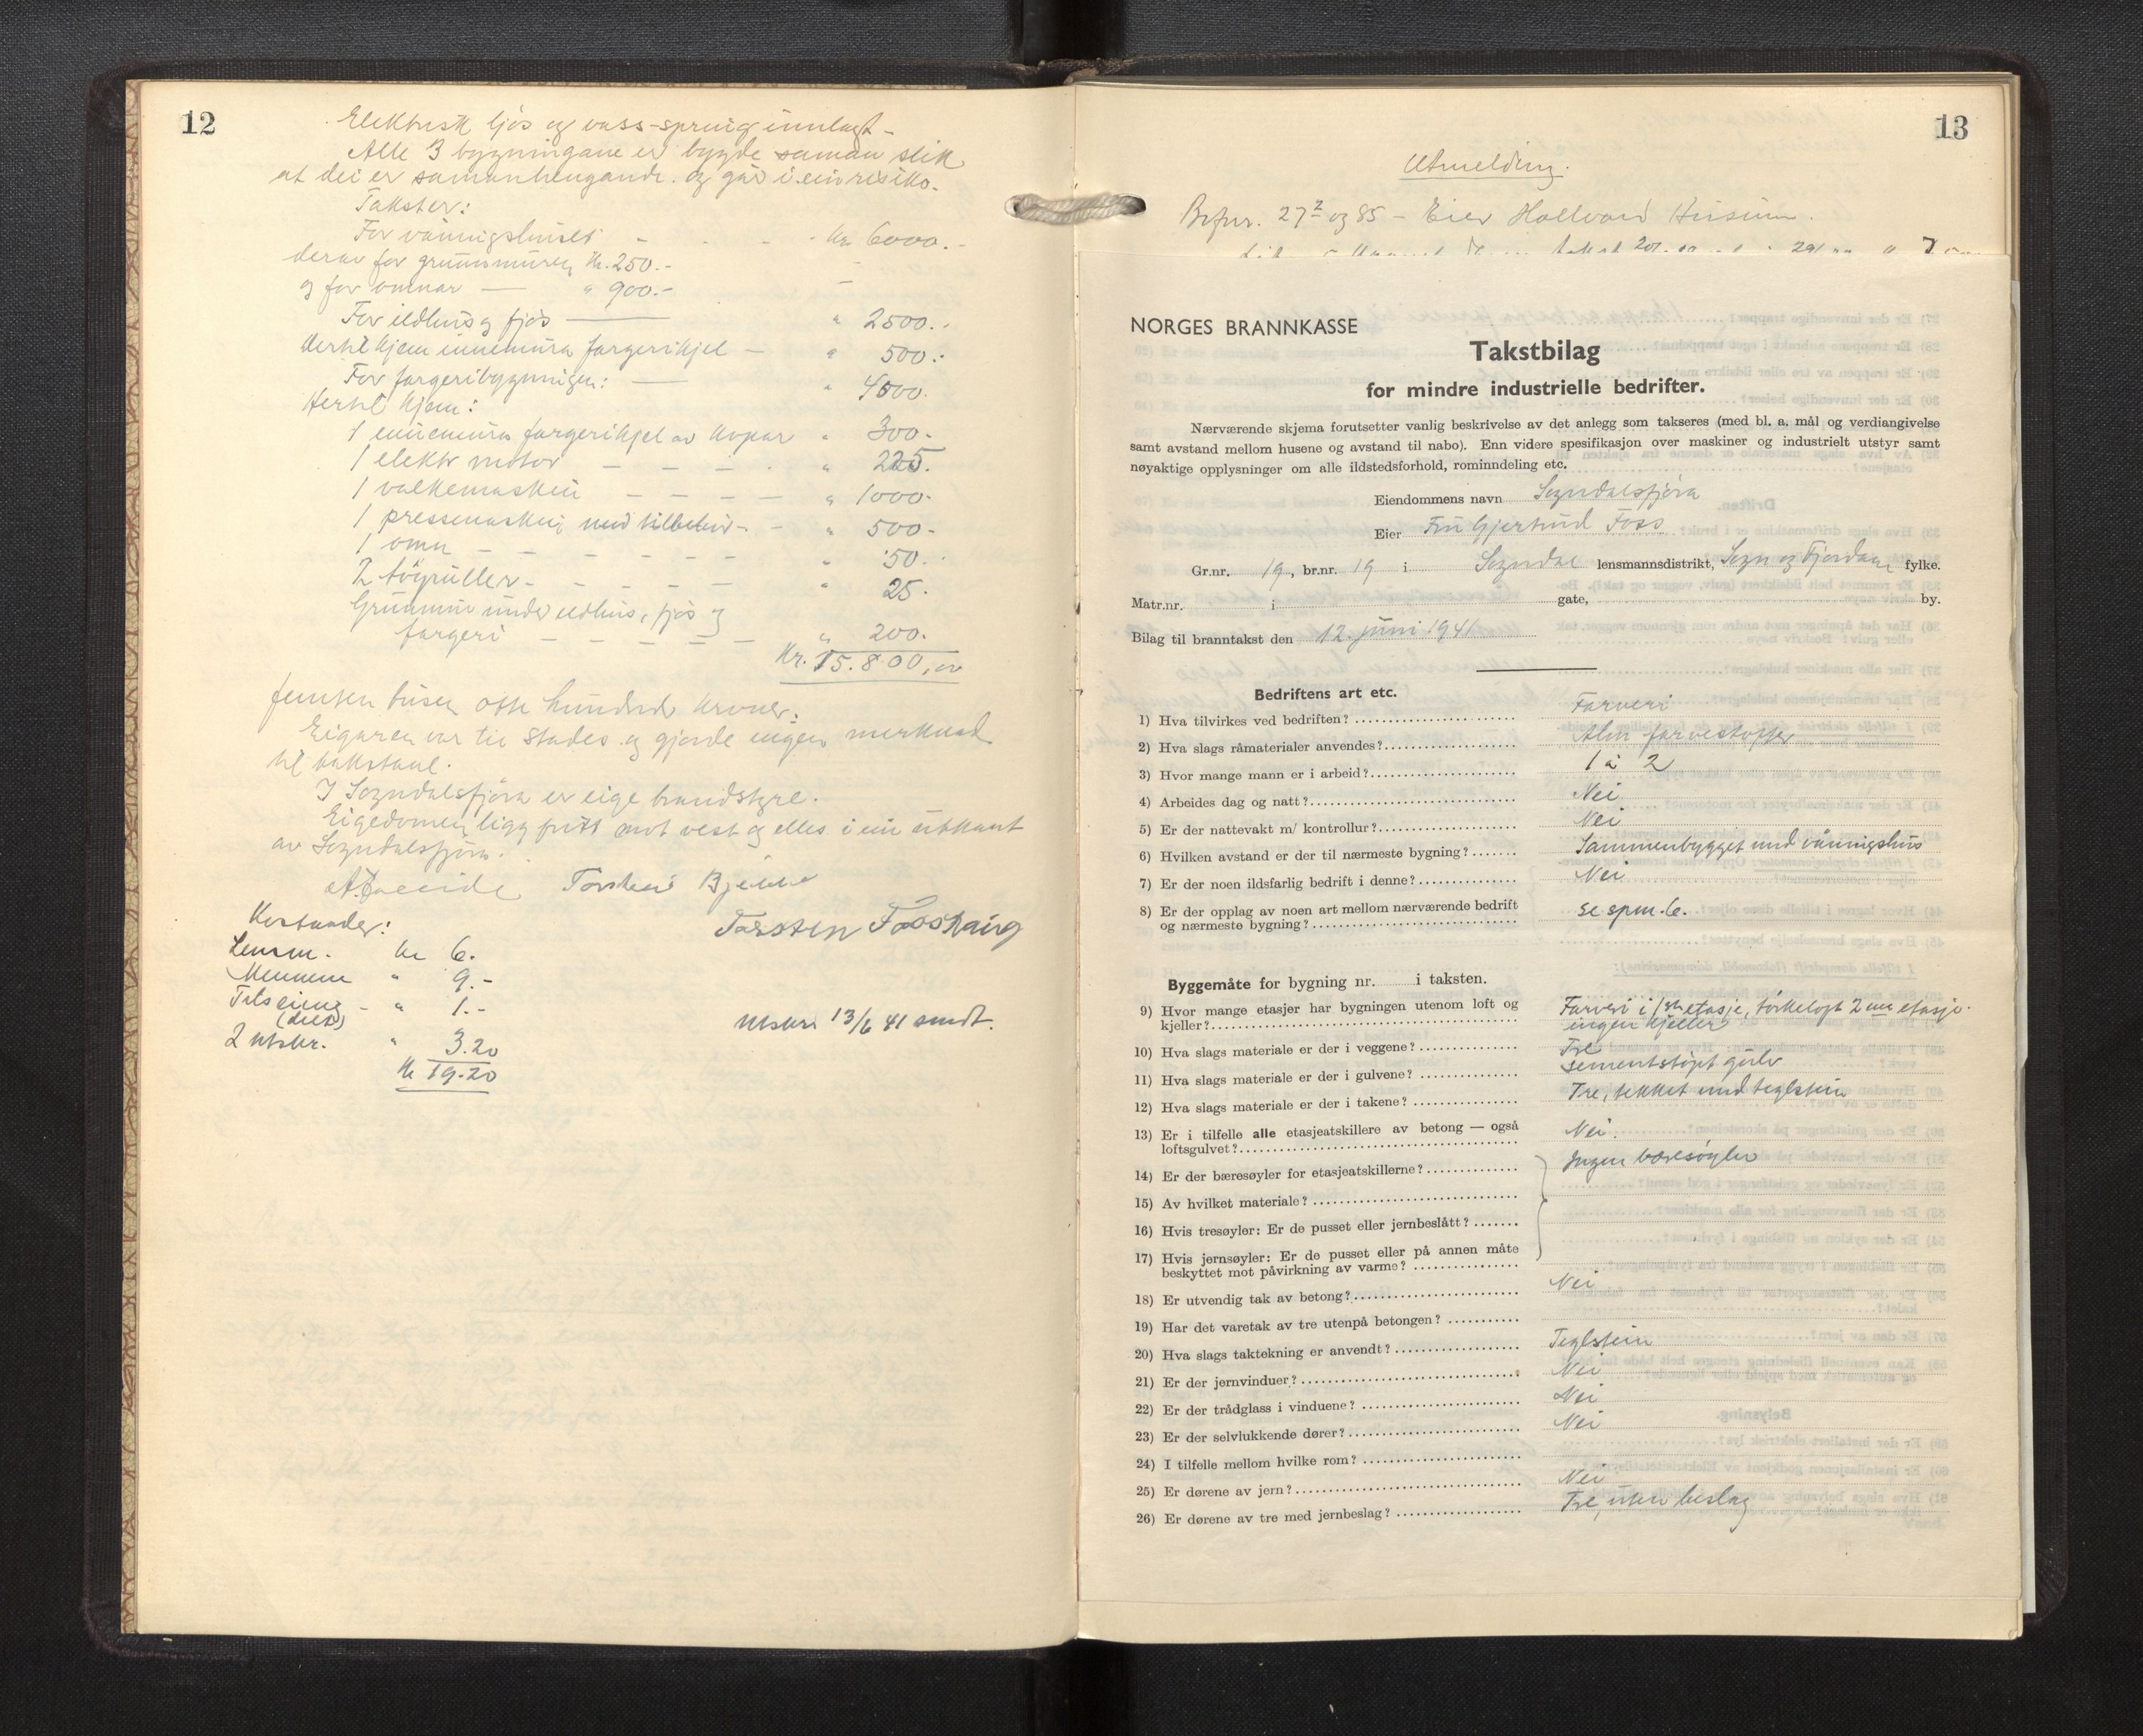 12
Elektrisk ljos og vass-spring innlagt -
Alle 3 bygningane er bygde saman slik
at dei er samanhengande. og går i ein risiko.
Takster:
For våningshuset - - - kr 6000.-
derav for grunnmuren kr. 250.-
og for omnar — " 900.-
For eldhus og fjøs — " 2500.-
dertil kjem innemura fargerikjel — " 500.-
For fargeribygningen: — " 4500.
dertil kjem:
1 innemura fargerikjel av kopar " 300.-
1 elektr motor - - - - " 225.
1 valkemaskin - - - - " 1000.-
1 pressemaskin med tilbehør - - " 500.-
1 omn - - - - - - " 50.-
2 tøyruller - - - - - " 25.
Grunnmur under eldhus, fjøs og
fargeri - - - - - " 200.
Kr. 15.800, er
femten tusen otte hundred kroner.
Eigaren var til stades og gjorde ingen merknad
til takstane.
I Sogndalsfjøra er eige brandstyre.
Eigedomen ligg fritt mot vest og elles i ein utkant
av Sogndalsfjøra.
Torstein
Torsten Fosshaug
Kostnader:
Lensm. kr 6.
Mennene " 9.-
- " 1.-
2 utskr. " 3.20
kr 19.20
Utskr. 13/6 41 sendt.
13
Utmelding.
Brfnr. 27² og 85 - Eier Hallvard Husum.
NORGES BRANNKASSE
Takstbilag
for mindre industrielle bedrifter.
Nærværende skjema forutsetter vanlig beskrivelse av det anlegg som takseres (med bl. a. mål og verdiangivelse
samt avstand mellom husene og avstand til nabo). Enn videre spesifikasjon over maskiner og industrielt utstyr samt
nøyaktige opplysninger om alle ildstedsforhold, rominndeling etc.
Eiendommens navn Sogndalsfjøra
Eier Fru Gjertrud Foss
Gr.nr. 19, br.nr. 19 i Sogndal lensmannsdistrikt, Sogn og Fjordane fylke.
Matr.nr. i gate, by.
Bilag til branntakst den 12. juni 1941
Bedriftens art etc.
1) Hva tilvirkes ved bedriften? Farveri
2) Hva slags råmaterialer anvendes? Alm farvestoffer
3) Hvor mange mann er i arbeid? 1 à 2
4) Arbeides dag og natt? Nei
5) Er der nattevakt m/ kontrollur? Nei
6) Hvilken avstand er der til nærmeste bygning? Sammenbygget med våningshus
7) Er der noen ildsfarlig bedrift i denne? Nei
8) Er der opplag av noen art mellom nærværende bedrift
og nærmeste bygning? se spm. 6.
Byggemåte for bygning nr. i taksten.
9) Hvor mange etasjer har bygningen utenom loft og
kjeller? Farveri i 1ste etasje, tørkeloft 2nne etasje.
ingen kjeller
10) Hva slags materiale er der i veggene? Tre
11) Hva slags materiale er der i gulvene? sementstøpt gulv
12) Hva slags materiale er der i takene? Tre, tekket med teglstein
13) Er i tilfelle alle etasjeatskillere av betong — også
loftsgulvet? Nei.
14) Er der bæresøyler for etasjeatskillerne? Ingen bæresøyler
15) Av hvilket materiale?
16) Hvis tresøyler: Er de pusset eller jernbeslått?
17) Hvis jernsøyler: Er de pusset eller på annen måte
beskyttet mot påvirkning av varme?
18) Er utvendig tak av betong? Nei
19) Har det varetak av tre utenpå betongen?
20) Hva slags taktekning er anvendt? Teglstein
21) Er der jernvinduer? Nei
22) Er der trådglass i vinduene? Nei
23) Er der selvlukkende dører? Nei
24) I tilfelle mellom hvilke rom?
25) Er dørene av jern? Nei
26) Er dørene av tre med jernbeslag? Tre, uten beslag